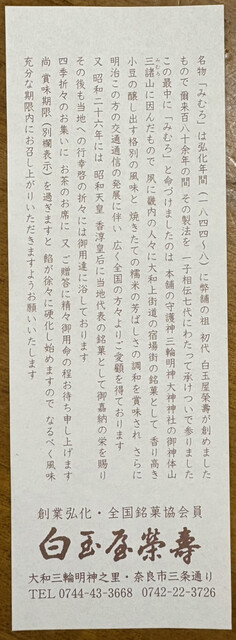 名物「みむろ」は弘化年間(一八四四〜八)に弊舗の祖 初代 白玉屋榮壽が創めました
もので 爾来百八十余年の間 その製法を 一子相伝七代にわたって承けついで参りました
この最中に「みむろ」と命づけましたのは 本舗の守護神 三輪明神大神神社の御神体山
三諸山に因んだもので 夙に畿内の人々に大和上街道の宿場街の銘菓として 香り高き
みむろ
小豆の醸し出す格別の風味と 焼きたての糯米の芳ばしさの調和を賞味され さらに
明治この方の交通通信の発展に伴い 広く全国の方々よりご愛顧を得ております
又 昭和二十六年には 昭和天皇 香淳皇后に当地代表の銘菓として御嘉納の栄を賜り
その後も当地への行幸啓の折々には御用達に浴しております
四季折々のお集いに お茶のお席に 又 ご贈答に精々御用命の程お待ち申し上げます
尚 賞味期限(別欄表示)を過ぎますと 餡が徐々に硬化し始めますので なるべく風味
充分な期限内にお召し上がりいただきますようお願いいたします
創業弘化・全国銘菓協会員
白玉屋榮壽
大和三輪明神之里・奈良市三条通り
TEL 0744-43-3668 0742-22-3726